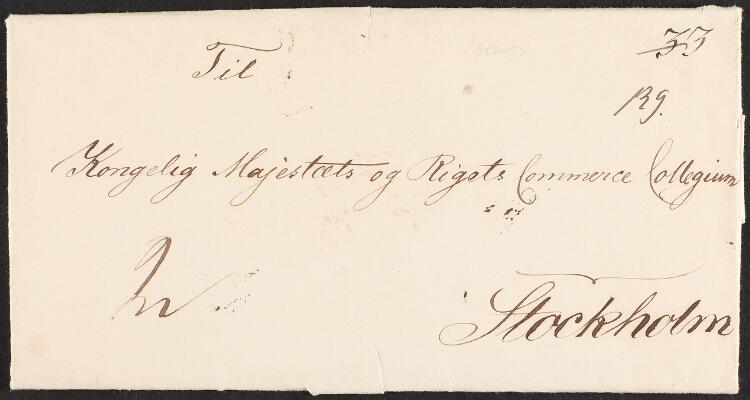 Til
33
Kongelig Majestæts og Rigets Commerce Collegium
Stockholm